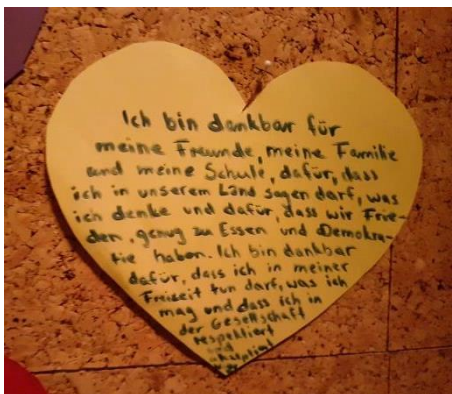 Ich bin dankbar für
meine Freunde, meine Familie
und meine Schule, dafür, dass
ich in unserem Land sagen darf, was
ich denke und dafür, dass wir Frie-
den, genug zu Essen und Demokra-
tie haben. Ich bin dankbar
dafür, dass ich in meiner
Freizeit tun darf, was ich
mag und dass ich in
der Gesellschaft
respektiert